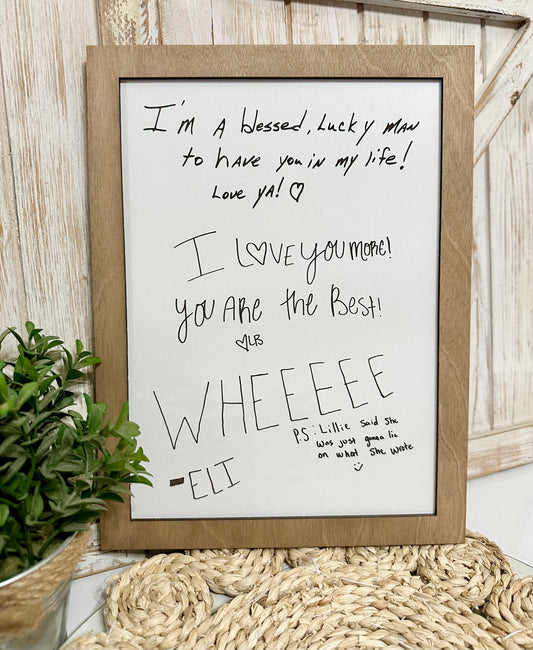 I'm A blessed, Lucky MAN
to have you in my life!
Love YA! ♡
I L♡VE YOU MORE!
YOU ARE the Best!
♡LB
WHEEEEE
P.S: Lillie Said She
was just gonna lie
on what She wrote
:)
-ELI